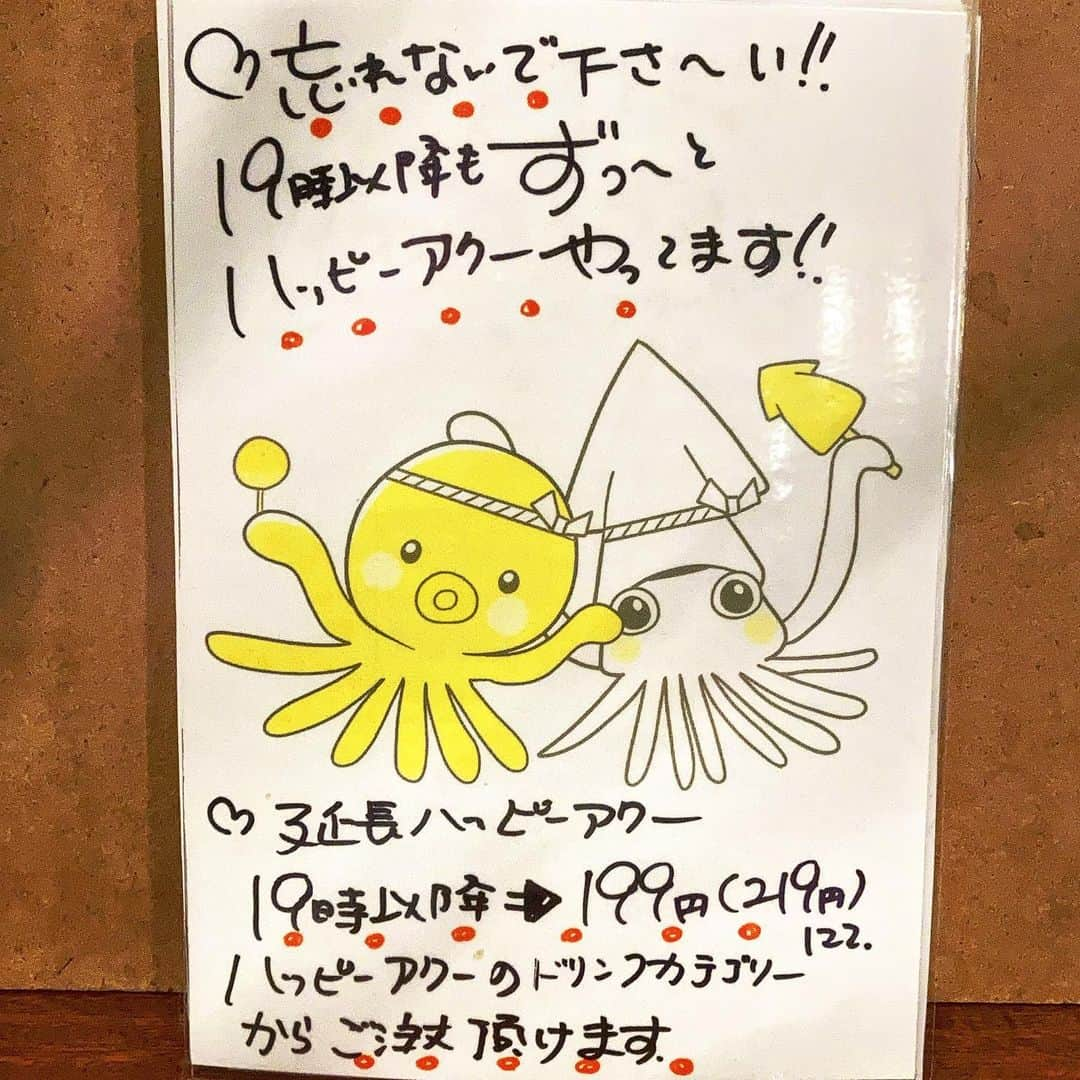 ♡忘れないで下さ〜い!!
19時以降もずっ〜と
ハッピーアワーやってます!!
♡延長ハッピーアワー
19時以降⇒199円(219円)
にて.
ハッピーアワーのドリンクカテゴリー
からご注文頂けます.